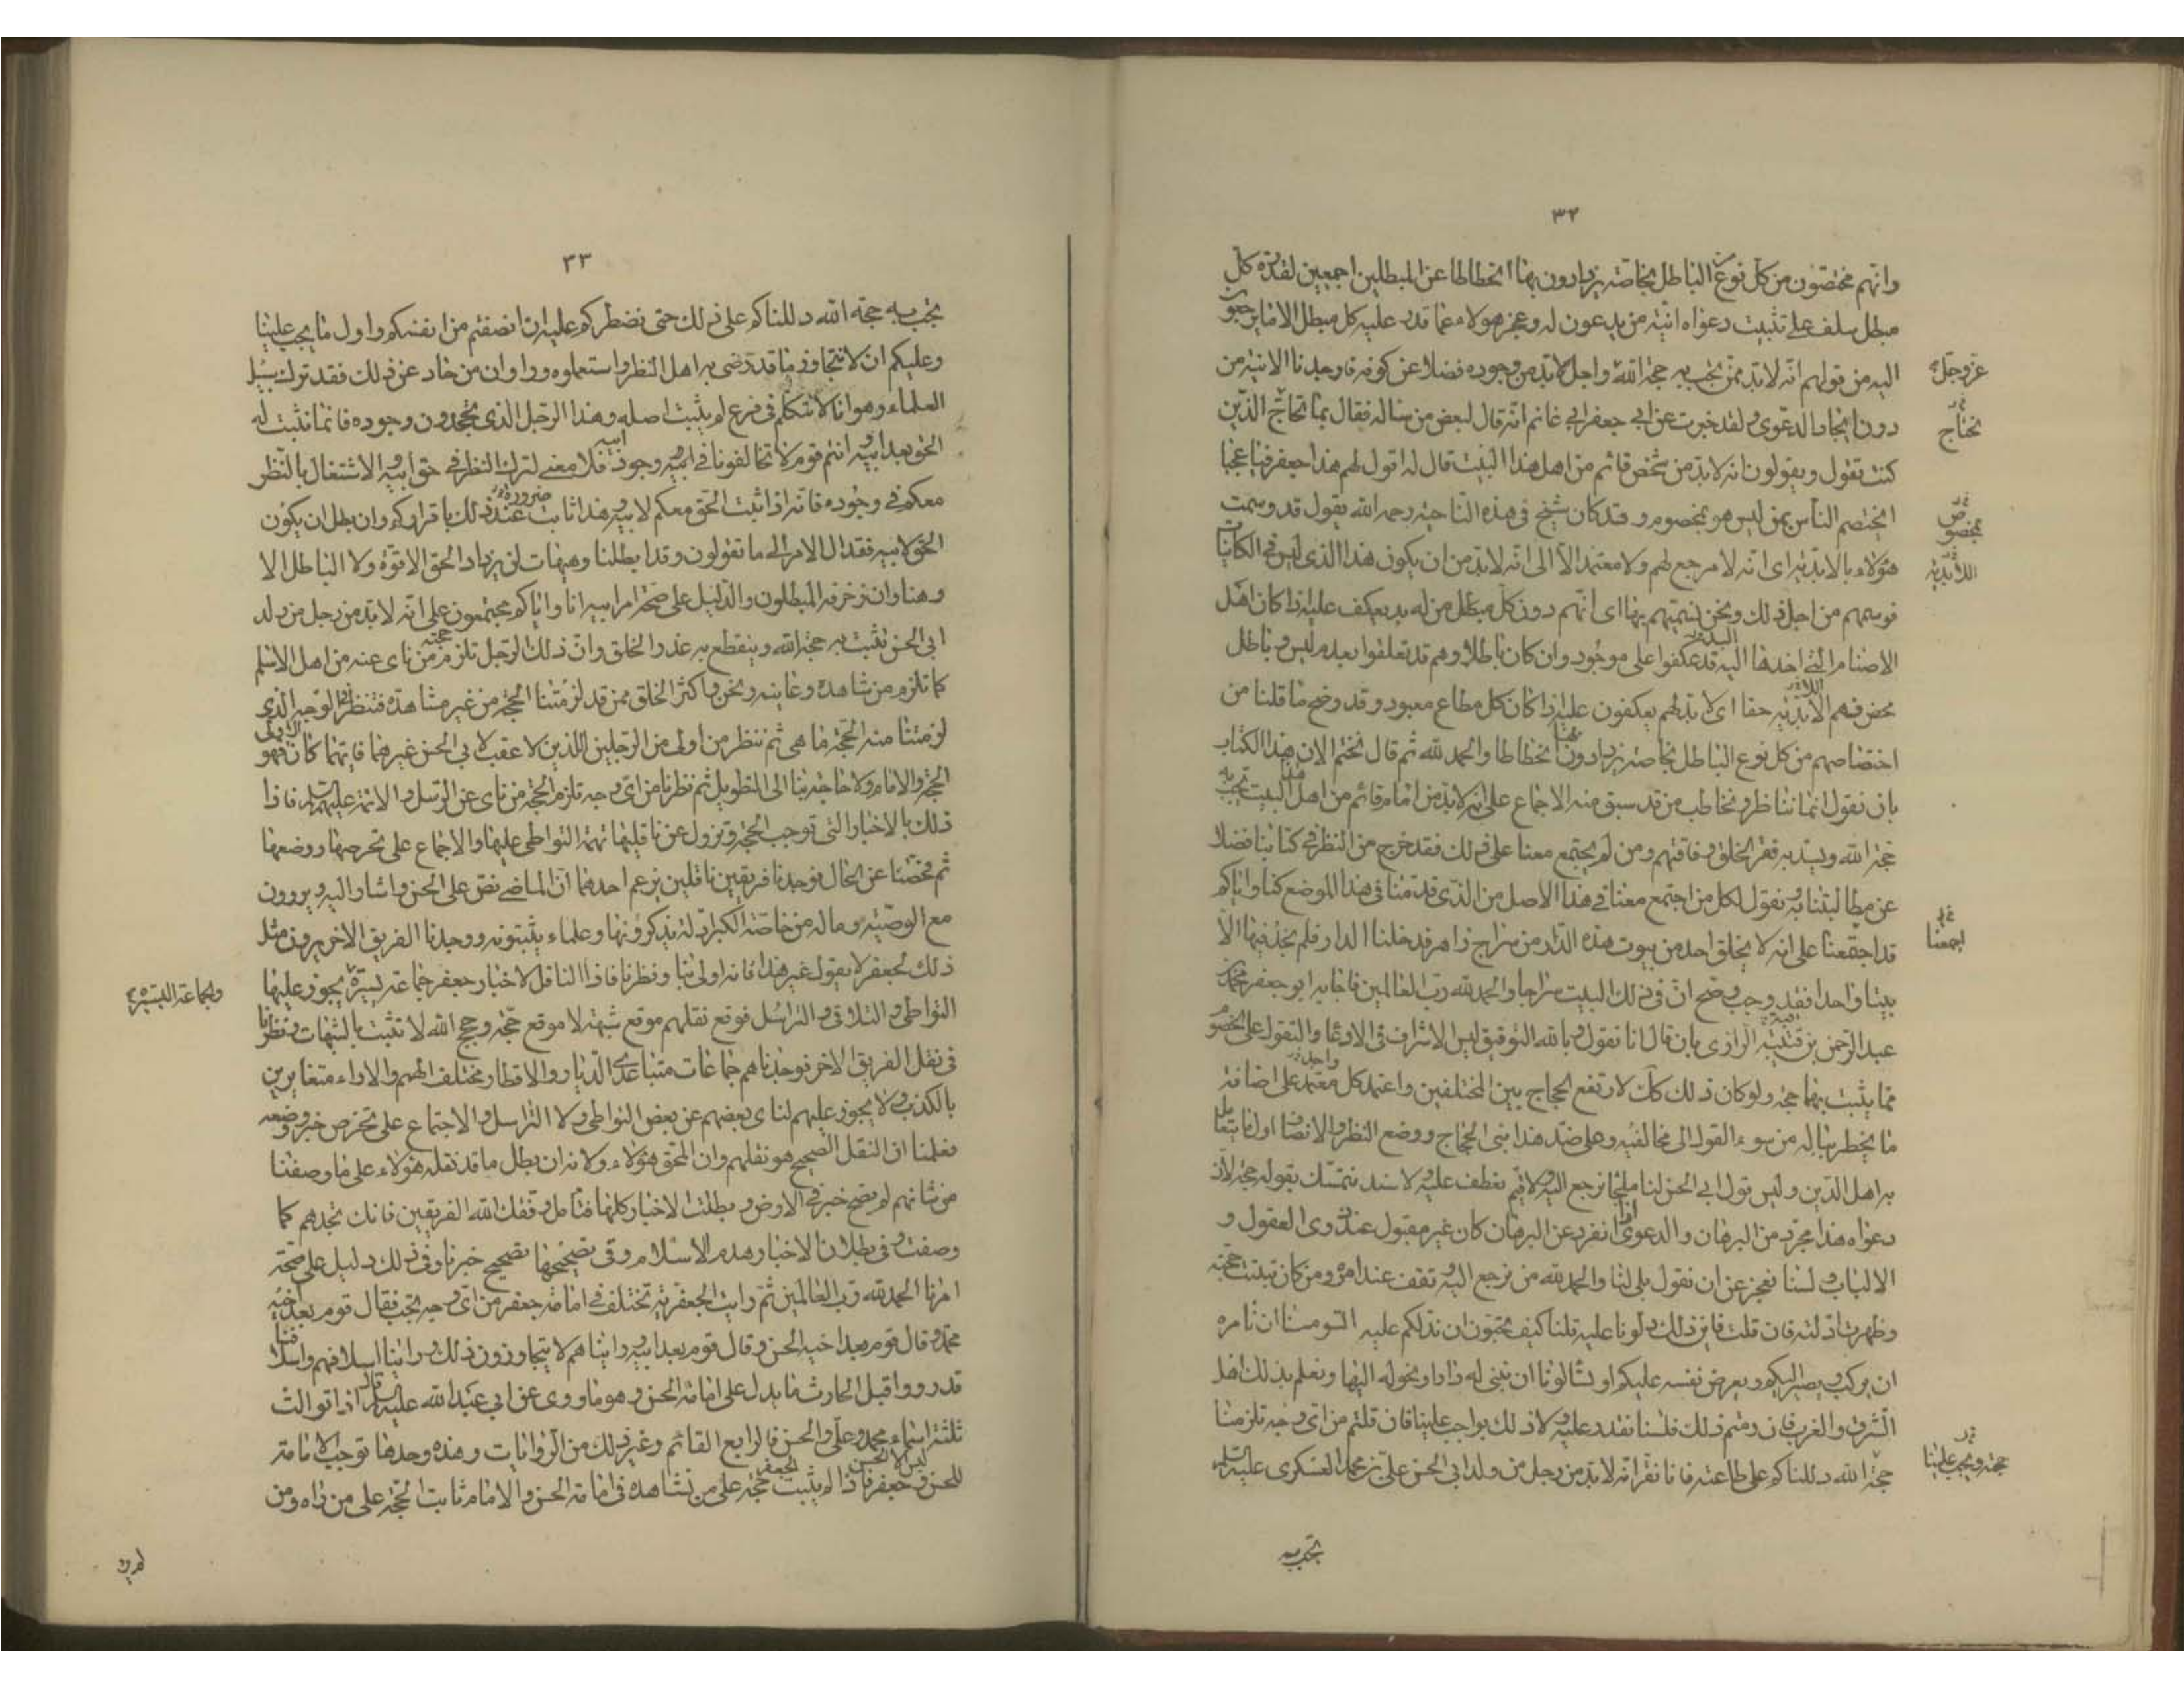 ٣٢
وانهم مختصون من كل نوع الباطل بخاصة يزدادون بها انحطاطا عن المبطلين اجمعين لقدرة كل
مبطل سلف على تثبيت دعواه انية من يدعون له وعجز هولاء عما قدر عليه كل مبطل الا ما يرجعون
اليه من قولهم انه لابد ممن تجب به حجة الله واجل لابد من وجوده فضلا عن كونه فاوجدنا الانية من
عز وجل
دون ايجاد الدعوى ولقد خبرت عن ابي جعفر ابي غانم انه قال لبعض من ساله فقال بما تحاج الذين
نحتاج
كنت تقول ويقولون انه لابد من شخص قائم من اهل هذا البيت قال له اقول لهم هذا جعفر فيا عجبا
ايختصم الناس بمن ليس هو بمخصوم وقد كان شيخ في هذه الناحية رحمه الله يقول قد وسمت
بمخصوص
هؤلاء بالابدية اى انه لا مرجع لهم ولا معتمد الا الى انه لابد من ان يكون هذا الذى ليس فى الكائنات
اللابدية
فوسمهم من اجل ذلك ونحن نسميهم بها اى انهم دون كل مبطل من له بد يعكف عليه اذا كان اهل
الاصنام التى احدها البد قد عكفوا على موجود وان كان باطلا وهم قد تعلقوا بعدم ليس وباطل
محض فهم الابدية حقا اى لابد لهم يعكفون عليه اذا كان كل مطاع معبود وقد وضح ما قلنا من
اختصاصهم من كل نوع الباطل بخاصة يزدادون بها انحطاطا والحمد لله ثم قال نختم الان هذا الكتاب
بان نقول انما نناظر ونخاطب من قد سبق منه الاجماع على انه لابد من امام قائم من اهل البيت تجب به
حجة الله ويسد به فقر الخلق وفاقتهم ومن لم يجتمع معنا على ذلك فقد خرج من النظر فى كتابنا فضلا
عن مطالبتنا به ونقول لكل من اجتمع معنا فى هذا الاصل من الذى قدمنا فى هذا الموضع كنا واياكم
قد اجتمعنا على انه لا يخلق احد من بيوت هذه الدار من سراج زاهر فدخلنا الدار فلم نجد فيها الا
اجمعنا
بيتا واحدا فقد وجب وصح ان فى ذلك البيت سراجا والحمد لله رب العالمين فاجابه ابو جعفر محمد
عبد الرحمن بن قبة الرازى بان قال انا نقول وبالله التوفيق ليس الاسراف فى الادعا والتقول على الخصوم
مما يثبت بهما حجة ولو كان ذلك كذلك لارتفع الحجاج بين المختلفين واعتمد كل واحد على اضافة
ما يخطر بباله من سوء القول الى مخالفيه وعلى ضد هذا بنى الحجاج ووضع النظر والانصاف اولى ما يتعامل
به اهل الدين وليس قول ابي الحسن لنا ملجأ نرجع اليه ولا قيم نعطف عليه ولا سند نتمسك بقوله حجة لان
دعواه هذا مجرد من البرهان والدعوى اذا انفرد عن البرهان كان غير مقبول عند ذوى العقول و
الالباب ولسنا نعجز عن ان نقول بلى لنا والحمد لله من نرجع اليه ونقف عند امره ومن كان ثبتت حجته
وظهرت ادلته فان قلت فاين ذلك دلونا عليه قلنا كيف تحبون ان ندلكم عليه اتسومنا ان نامره
ان يركب ويصير اليكم ويعرض نفسه عليكم او تسالونا ان نبنى له دارا ونحوله اليها ونعلم بذلك اهل
الشرق والغرب فان رمتم ذلك فلسنا نقدر عليه ولا ذلك بواجب علينا فان قلتم من اى وجه تلزمنا
حجة الله دللناكم على طاعته فانا نقر انه لابد من رجل من ولد ابى الحسن على بن محمد العسكرى عليه السلم
حجة ويجب علينا
تجب به
٣٣
تجب به حجة الله دللناكم على ذلك حتى نضطركم عليه ان انصفتم من انفسكم واول ما يجب علينا
وعليكم ان لا نتجاوز ما قد رضى به اهل النظر واستعملوه وراوا ان من حاد عن ذلك فقد ترك سبيل
العلماء وهو انا لا نتكلم فى فرع لم يثبت اصله وهذا الرجل الذى تجحدون وجوده فانما نثبت له
الحق بعد ابيه وانتم قوم لا تخالفونا فى وجود ابيه فلا معنى لترك النظر فى حق ابيه والاشتغال بالنظر
معكم فى وجوده فانه اذا ثبت الحق معكم لابيه فهذا ثابت ضرورة عند ذلك باقراركم وان بطل ان يكون
الحق لابيه فقد ال الامر الى ما تقولون وقد ابطلنا وهيهات لن يزداد الحق الا قوة ولا الباطل الا
وهنا وان زخرفه المبطلون والدليل على صحة امر ابيه انا واياكم مجتمعون على انه لابد من رجل من ولد
ابى الحسن تثبت به حجة الله وينقطع به عذر الخلق وان ذلك الرجل تلزم حجته من ناى عنه من اهل الاسلم
كما تلزم من شاهده وعاينه ونحن واكثر الخلق ممن قد لزمتنا الحجة من غير مشاهدة فننظر فى الوجه الذى
لزمتنا منه الحجة ما هى ثم ننظر من اولى من الرجلين اللذين لا عقب لابى الحسن غيرهما فايهما كان اولى فهو
الحجة والامام ولا حاجة بنا الى التطويل ثم نظرنا من اى وجه تلزم الحجة من ناى عن الرسل والائمة عليهم السلم فاذا
ذلك بالاخبار التى توجب الحجة وتزول عن ناقليها تهمة التواطى عليها والاجماع على تخرصها ووضعها
ثم فحصنا عن الحال فوجدنا فريقين ناقلين يزعم احدهما ان الماضى نص على الحسن واشار اليه ويروون
مع الوصية وما له من خاصة الكبر ادلة يذكرونها وعلماء يثبتونه ووجدنا الفريق الاخر يروون مثل
ذلك لجعفر لا يقول غير هذا فانه اولى بنا ونظرنا فاذا الناقل لاخبار جعفر جماعة يسيرة يجوز عليها
والجماعة اليسيرة
التواطى والتلاقى والتراسل فوقع نقلهم موقع شبهة لا موقع حجة وحجج الله لا تثبت بالشبهات ونظرنا
فى نقل الفريق الاخر فوجدناهم جماعات متباعدى الديار والاقطار مختلفى الهمم والاراء متغايرين
بالكذب ولا يجوز عليهم لناى بعضهم عن بعض التواطى ولا التراسل والاجتماع على تخرص خبر ووضعه
فعلمنا ان النقل الصحيح هو نقلهم وان المحق هؤلاء ولانه ان بطل ما قد نقله هؤلاء على ما وصفنا
من شانهم لم يصح خبر فى الارض وبطلت الاخبار كلها فتامل وفقك الله الفريقين فانك تجدهم كما
وصفت وفى بطلان الاخبار هدم الاسلام وفى تصحيحها تصحيح خبرنا وفى ذلك دليل على صحة
امرنا الحمد لله رب العالمين ثم رايت الجعفرية تختلف فى امامة جعفر من اى وجه تجب فقال قوم بعد اخيه
محمد وقال قوم بعد اخيه الحسن وقال قوم بعد ابيه وراينا هم لا يتجاوزون ذلك وراينا اسلافهم واسلافنا
قد رووا قبل الحارث ما يدل على امامة الحسن وهو ما روى عن ابى عبد الله عليه السلم قال اذا توالت
ثلثة اسماء محمد وعلى والحسن فالرابع القائم وغير ذلك من الروايات وهذه وحدها توجب الامامة
للحسن وليس الا الحسن وجعفر فاذا لم يثبت لجعفر حجة على من شاهده فى امامة الحسن والامام ثابت الحجة على من راه ومن
لم يره